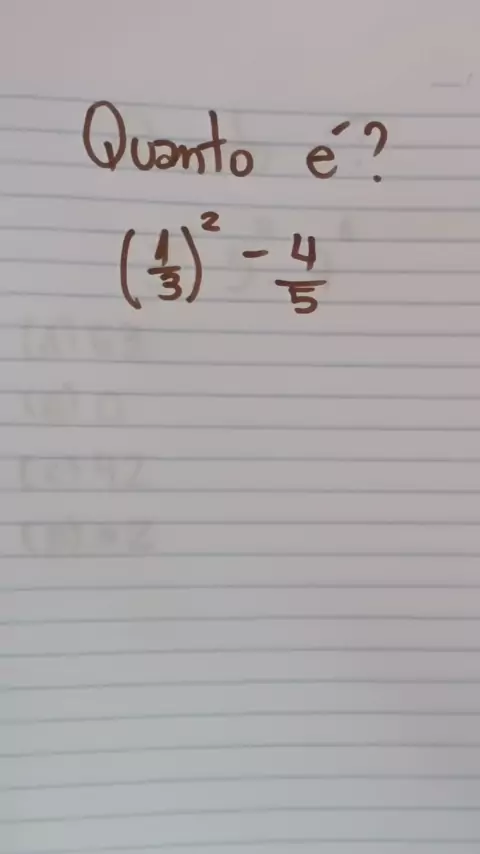 Quanto é?
(1/3)² - 4/5